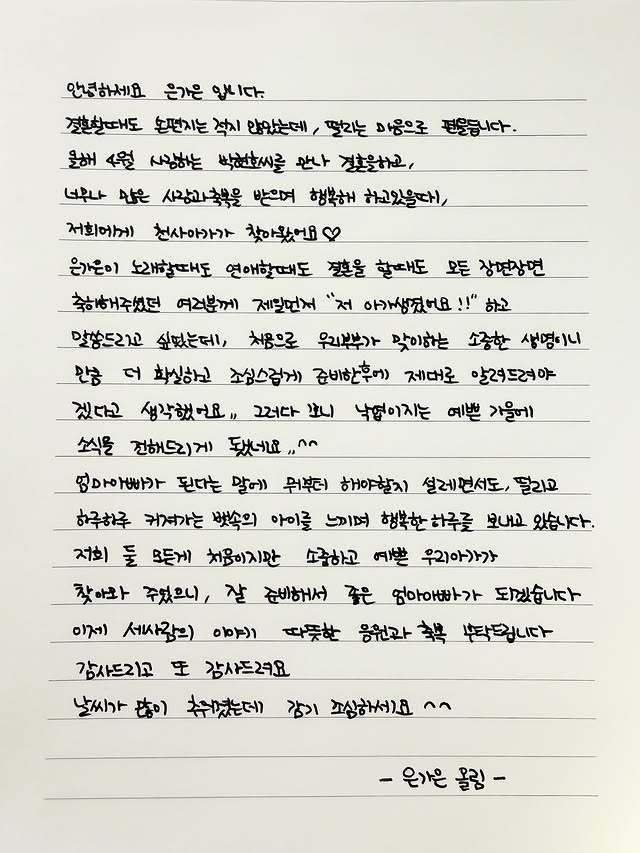 안녕하세요 은가은 입니다.
결혼할때도 손편지는 적지 않았는데, 떨리는 마음으로 펜을듭니다.
올해 4월 사랑하는 박현호씨를 만나 결혼을하고,
너무나 많은 사랑과축복을 받으며 행복해 하고있을때,
저희에게 천사아가가 찾아왔어요♡
은가은이 노래할때도 연애할때도 결혼을 할때도 모든 장면장면
축하해주셨던 여러분께 제일먼저 "저 아가생겼어요!!" 하고
말씀드리고 싶었는데, 처음으로 우리부부가 맞이하는 소중한 생명이니
만큼 더 확실하고 조심스럽게 준비한후에 제대로 알려드려야
겠다고 생각했어요,, 그러다 보니 낙엽이지는 예쁜 가을에
소식을 전해드리게 됐네요,,^^
엄마아빠가 된다는 말에 뭐부터 해야할지 설레면서도, 떨리고
하루하루 커져가는 뱃속의 아이를 느끼며 행복한하루를 보내고 있습니다.
저희 둘 모든게 처음이지만 소중하고 예쁜 우리아가가
찾아와 주었으니, 잘 준비해서 좋은 엄마아빠가 되겠습니다
이제 세사람의 이야기 따뜻한 응원과 축복 부탁드립니다
감사드리고 또 감사드려요
날씨가 많이 추워졌는데 감기 조심하세요 ^^
- 은가은 올림 -